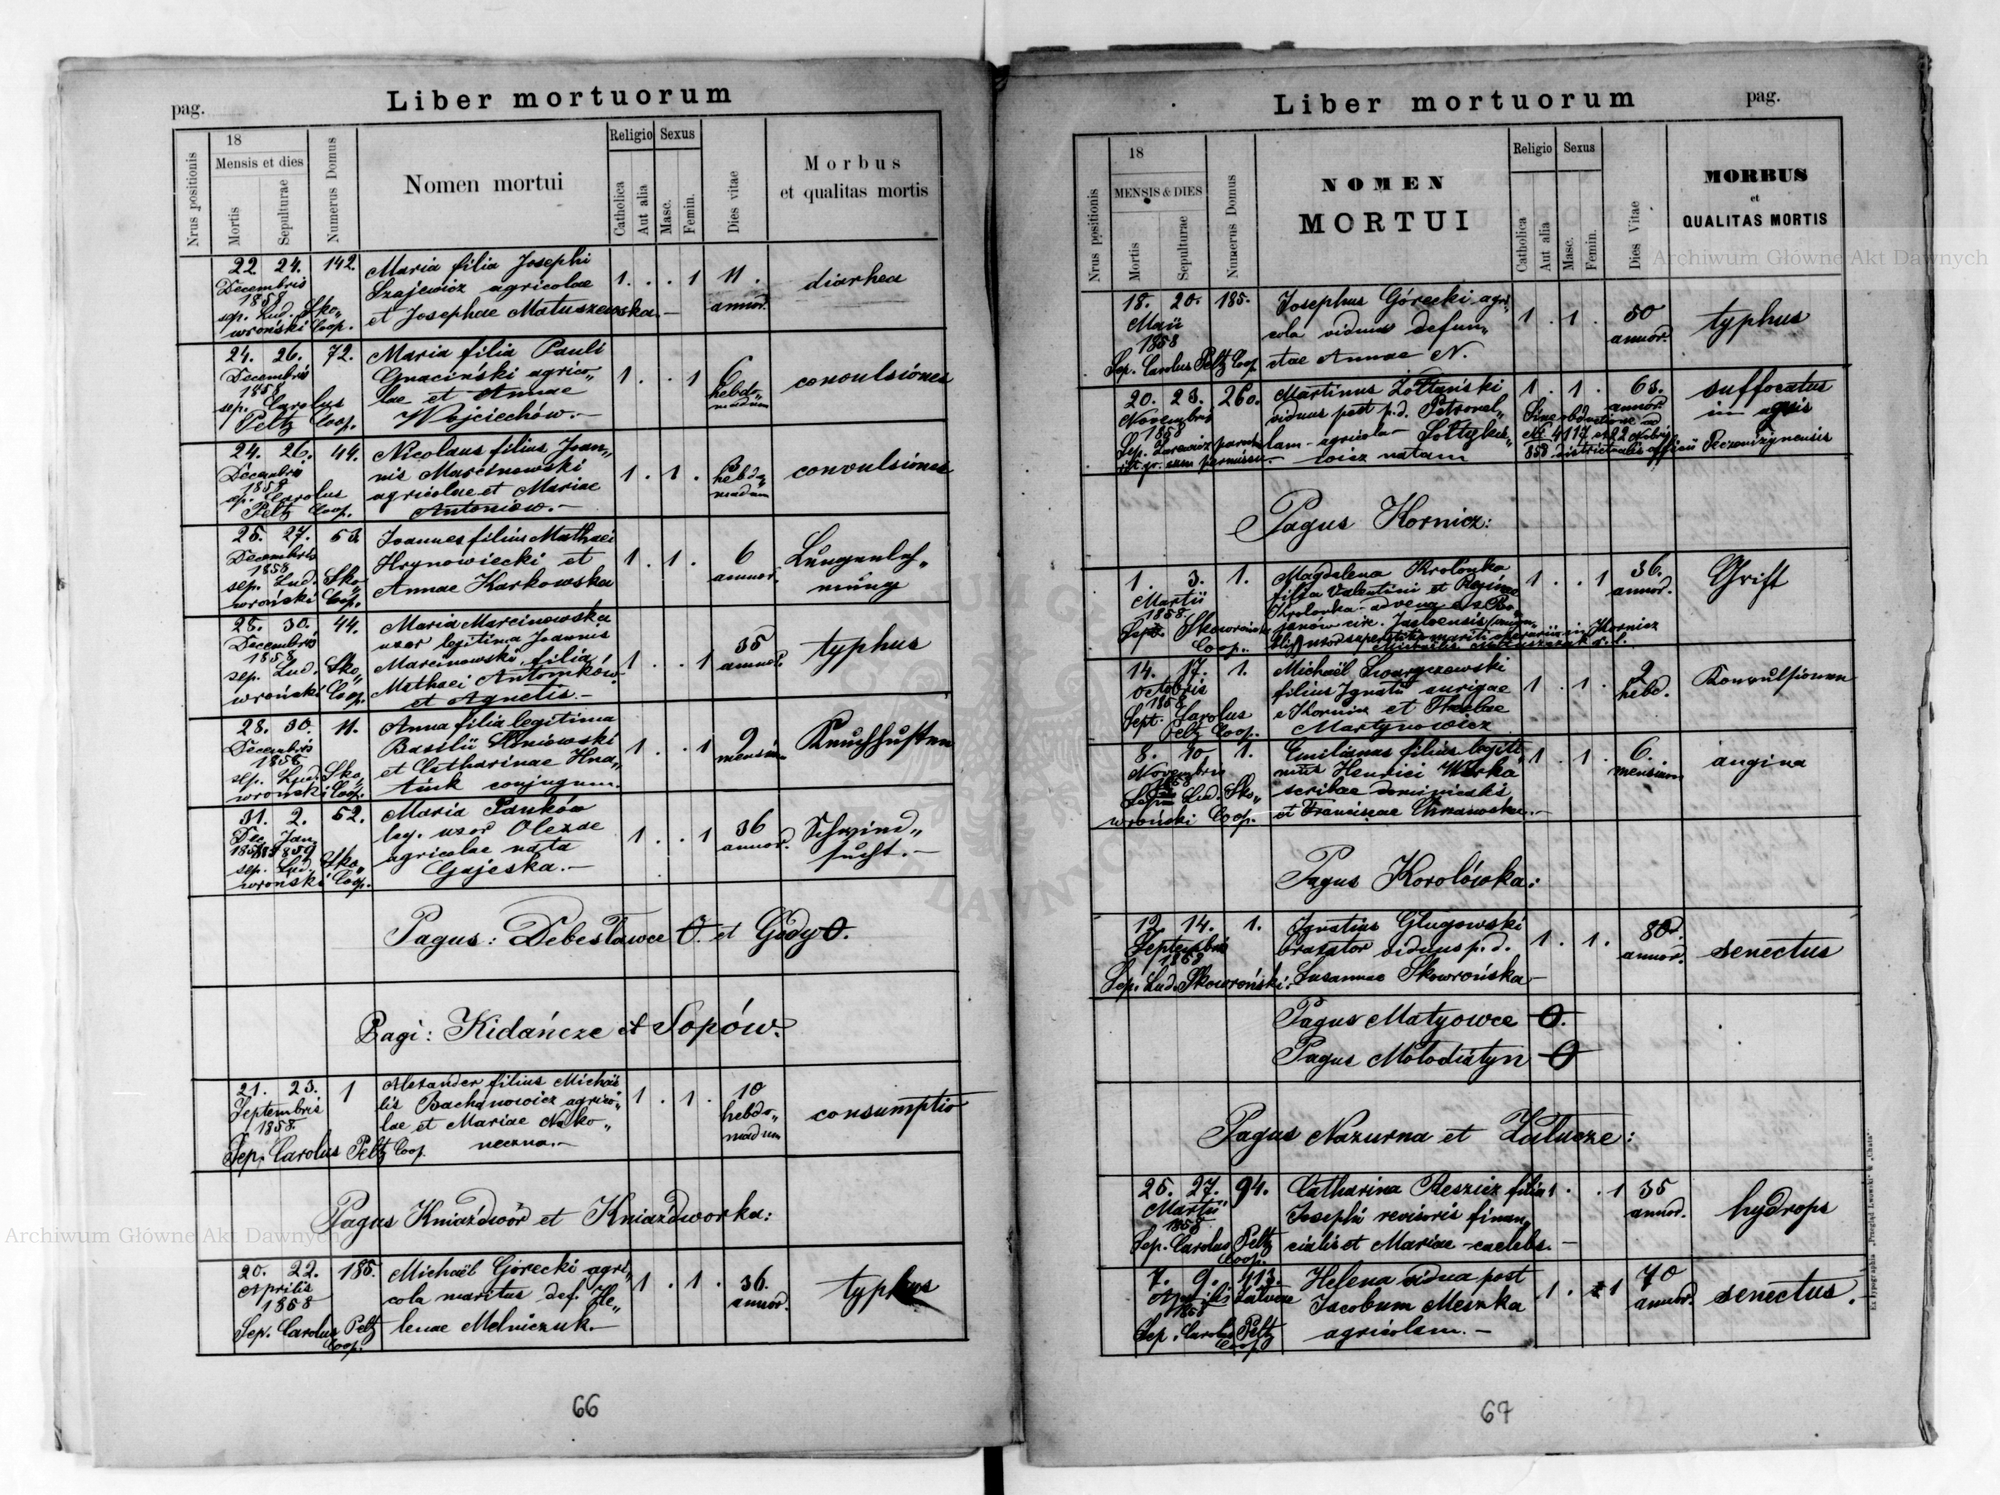 pag.
Liber mortuorum
Nrus positionis
18
Mensis et dies
Mortis
Sepulturae
Numerus Domus
Nomen mortui
Religio
Sexus
Catholica
Aut alia
Masc.
Femin.
Dies vitae
Morbus
et qualitas mortis
22. 24. 142. Maria filia Josephi
Decembris Szajewicz agricolae 1. . . 1 11. diarhea
1858 et Josephae Matuszewska. annor.
sep. Lud. Sko„
wroński Coop.
24. 26. 72. Maria filia Pauli
Decembris Gnaciński agrico„ 1. . . 1 6 convulsiones
1858 lae et Annae hebdo„
sep. Carolus Wojciechów. madum
Peltz Coop.
24. 26. 44. Nicolaus filius Joan„
Decembris nis Marcinowski 1. . 1. . convulsiones
1858 agricolae et Mariae hebdo„
sep. Carolus Antoniow. madum
Peltz Coop.
25. 27. 53. Joannes filius Mathaei
Decembris Hrynowiecki et 1. . 1. . 6 Lungenläh„
1858 Annae Karkowska annor. mung
sep. Lud. Sko„
wroński Coop.
28. 30. 44. Maria Marcinowska
Decembris uxor legitima Joannis 1. . . 1 35 typhus
1858 Marcinowski filia annor.
sep. Lud. Sko„ Mathaei Antomków
wroński Coop. et Agnetis.
28. 30. 11. Anna filia legitima
Decembris Basilii 1. . . 1 9 Keuchhusten
1858 et Catharinae Hna„ mensium
sep. Lud. Sko„ tiuk conjugum.
wroński Coop.
31. 2. 52. Maria Panków
Dec. Jan. leg. uxor Olexae 1. . . 1 36 Schwind„
1858 1859 agricolae nata annor. sucht.
sep. Lud. Sko„ Gajeska.
wroński Coop.
Pagus: Debesławce O. et Gody O.
Pagi: Kidańcze et Sopów.
21. 23. 1 Alexander filius Michaë„
Septembris lis Bachanowicz agrico„ 1. . 1. . 10 consumptio
1858. lae et Mariae Nako„ hebdo„
Sep. Carolus Peltz Coop. neczna. madum
Pagus Kniaźdwór et Kniaźdworka:
20. 22. 185. Michaël Górecki agri„
Aprilis cola maritus def. He„ 1. . 1. . 36. typhus
1858 lenae Melniczuk. annor.
Sep. Carolus Peltz
Coop.
66
Liber mortuorum
pag.
Nrus positionis
18
MENSIS & DIES
Mortis
Sepulturae
Numerus Domus
NOMEN
MORTUI
Religio
Sexus
Catholica
Aut alia
Masc.
Femin.
Dies Vitae
MORBUS
et
QUALITAS MORTIS
18. 20. 185. Josephus Górecki agri„
Maii cola viduus defun„ 1 . 1 . 50 typhus
1858 ctae Annae N. annor.
Sep. Carolus Peltz Coop.
20. 23. 260. Martinus Żołtański 1 . 1 . 63. suffocatus
Novembris viduus post p. d. Petronel„ annor. in aquis
1858 lam - agricola - Sołtyke„
wicz natam
Pagus Kornicz:
1. 3. 1. Magdalena Krolonka
Martii filia Valentini et Reginae 1 . . 1 36. Grift
1858. Krolonka advena annor.
Sep. Skowroński
Coop.
14. 17. 1. Michaël
octobris filius Ignatii aurigae 1 . 1 . 2 Konvulsionen
1858 e Kornicz et Theclae hebd.
Sept. Carolus Martynowicz
Peltz Coop.
8. 10 1. Emilianus filius legiti„
Novembris mus Henrici Warka 1 . 1 . 6. angina
1858 scribae dominicalis mensium
Lud. Sko„ et Franciscae
wroński Coop.
Pagus Korolówka:
12. 14. 1. Ignatius Glugowski
Septembris braxator viduus p. d. 1. . 1. 80. senectus
1858 Susannae Skowrońska annor.
Sep. Lud. Skowroński.
Pagus Matyowce O.
Pagus Mołodiatyn O
Pagus Nazurna et Załucze:
25. 27. 94. Catharina Reszicz filia 1 . . 1 35
Martii Josephi revisoris finan„ annor. hydrops
1858 cialis et Mariae caelebs.
Sep. Carolus Peltz
Coop.
7. 9. 413. Helena vidua post
Aprilis Jacobum Mesnka 1. . 1 70 senectus.
1858 agricolam. annor.
Sep. Carolus Peltz
Coop.
67
Ex typographia „Przegląd Lwowski“ & „Chata“
Archiwum Główne Akt Dawnych
Archiwum Główne Akt Dawnych